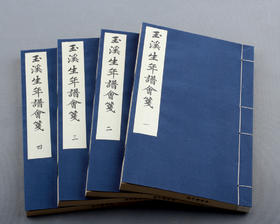 玉溪生年譜會箋 一
玉溪生年譜會箋 二
玉溪生年譜會箋 三
玉溪生年譜會箋 四